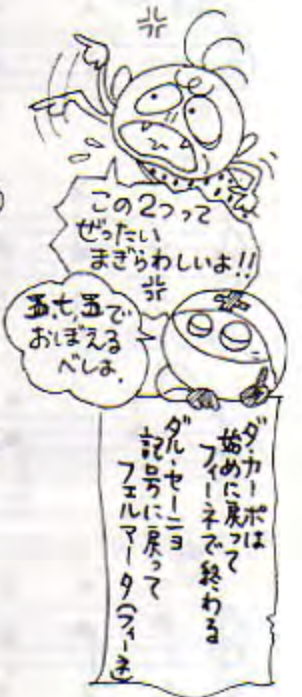 この2つって
ぜったい
まぎらわしいよ!!
五、七、五で
おぼえる
べしよ。
ダ・カーポは
始めに戻って
フィーネで終わる
ダル・セーニョ
記号に戻って
フェルマータ(フィーネ)